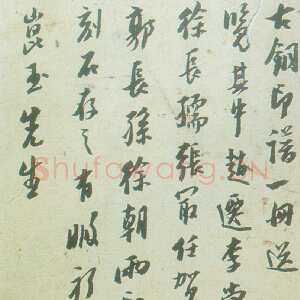 古銅印譜一冊送
覽其牛趙遷李尚
徐長孺張甯任賀
郭長孫徐朝雨
刻石存之有暇祈
崑玉先生
Shufawang.CN